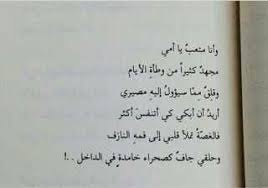 وأنا متعبٌ يا أمي
مجهدٌ كثيراً من وطأةِ الأيام
وقلِقٌ ممّا سيؤولُ إليهِ مصيري
أريدُ أن أبكي كي أتنفسَ أكثر
فالغصّةُ تملأ قلبي إلى قمعِهِ النازف
وحلقي جافٌ كصحراء خامدةٍ في الداخل . .!